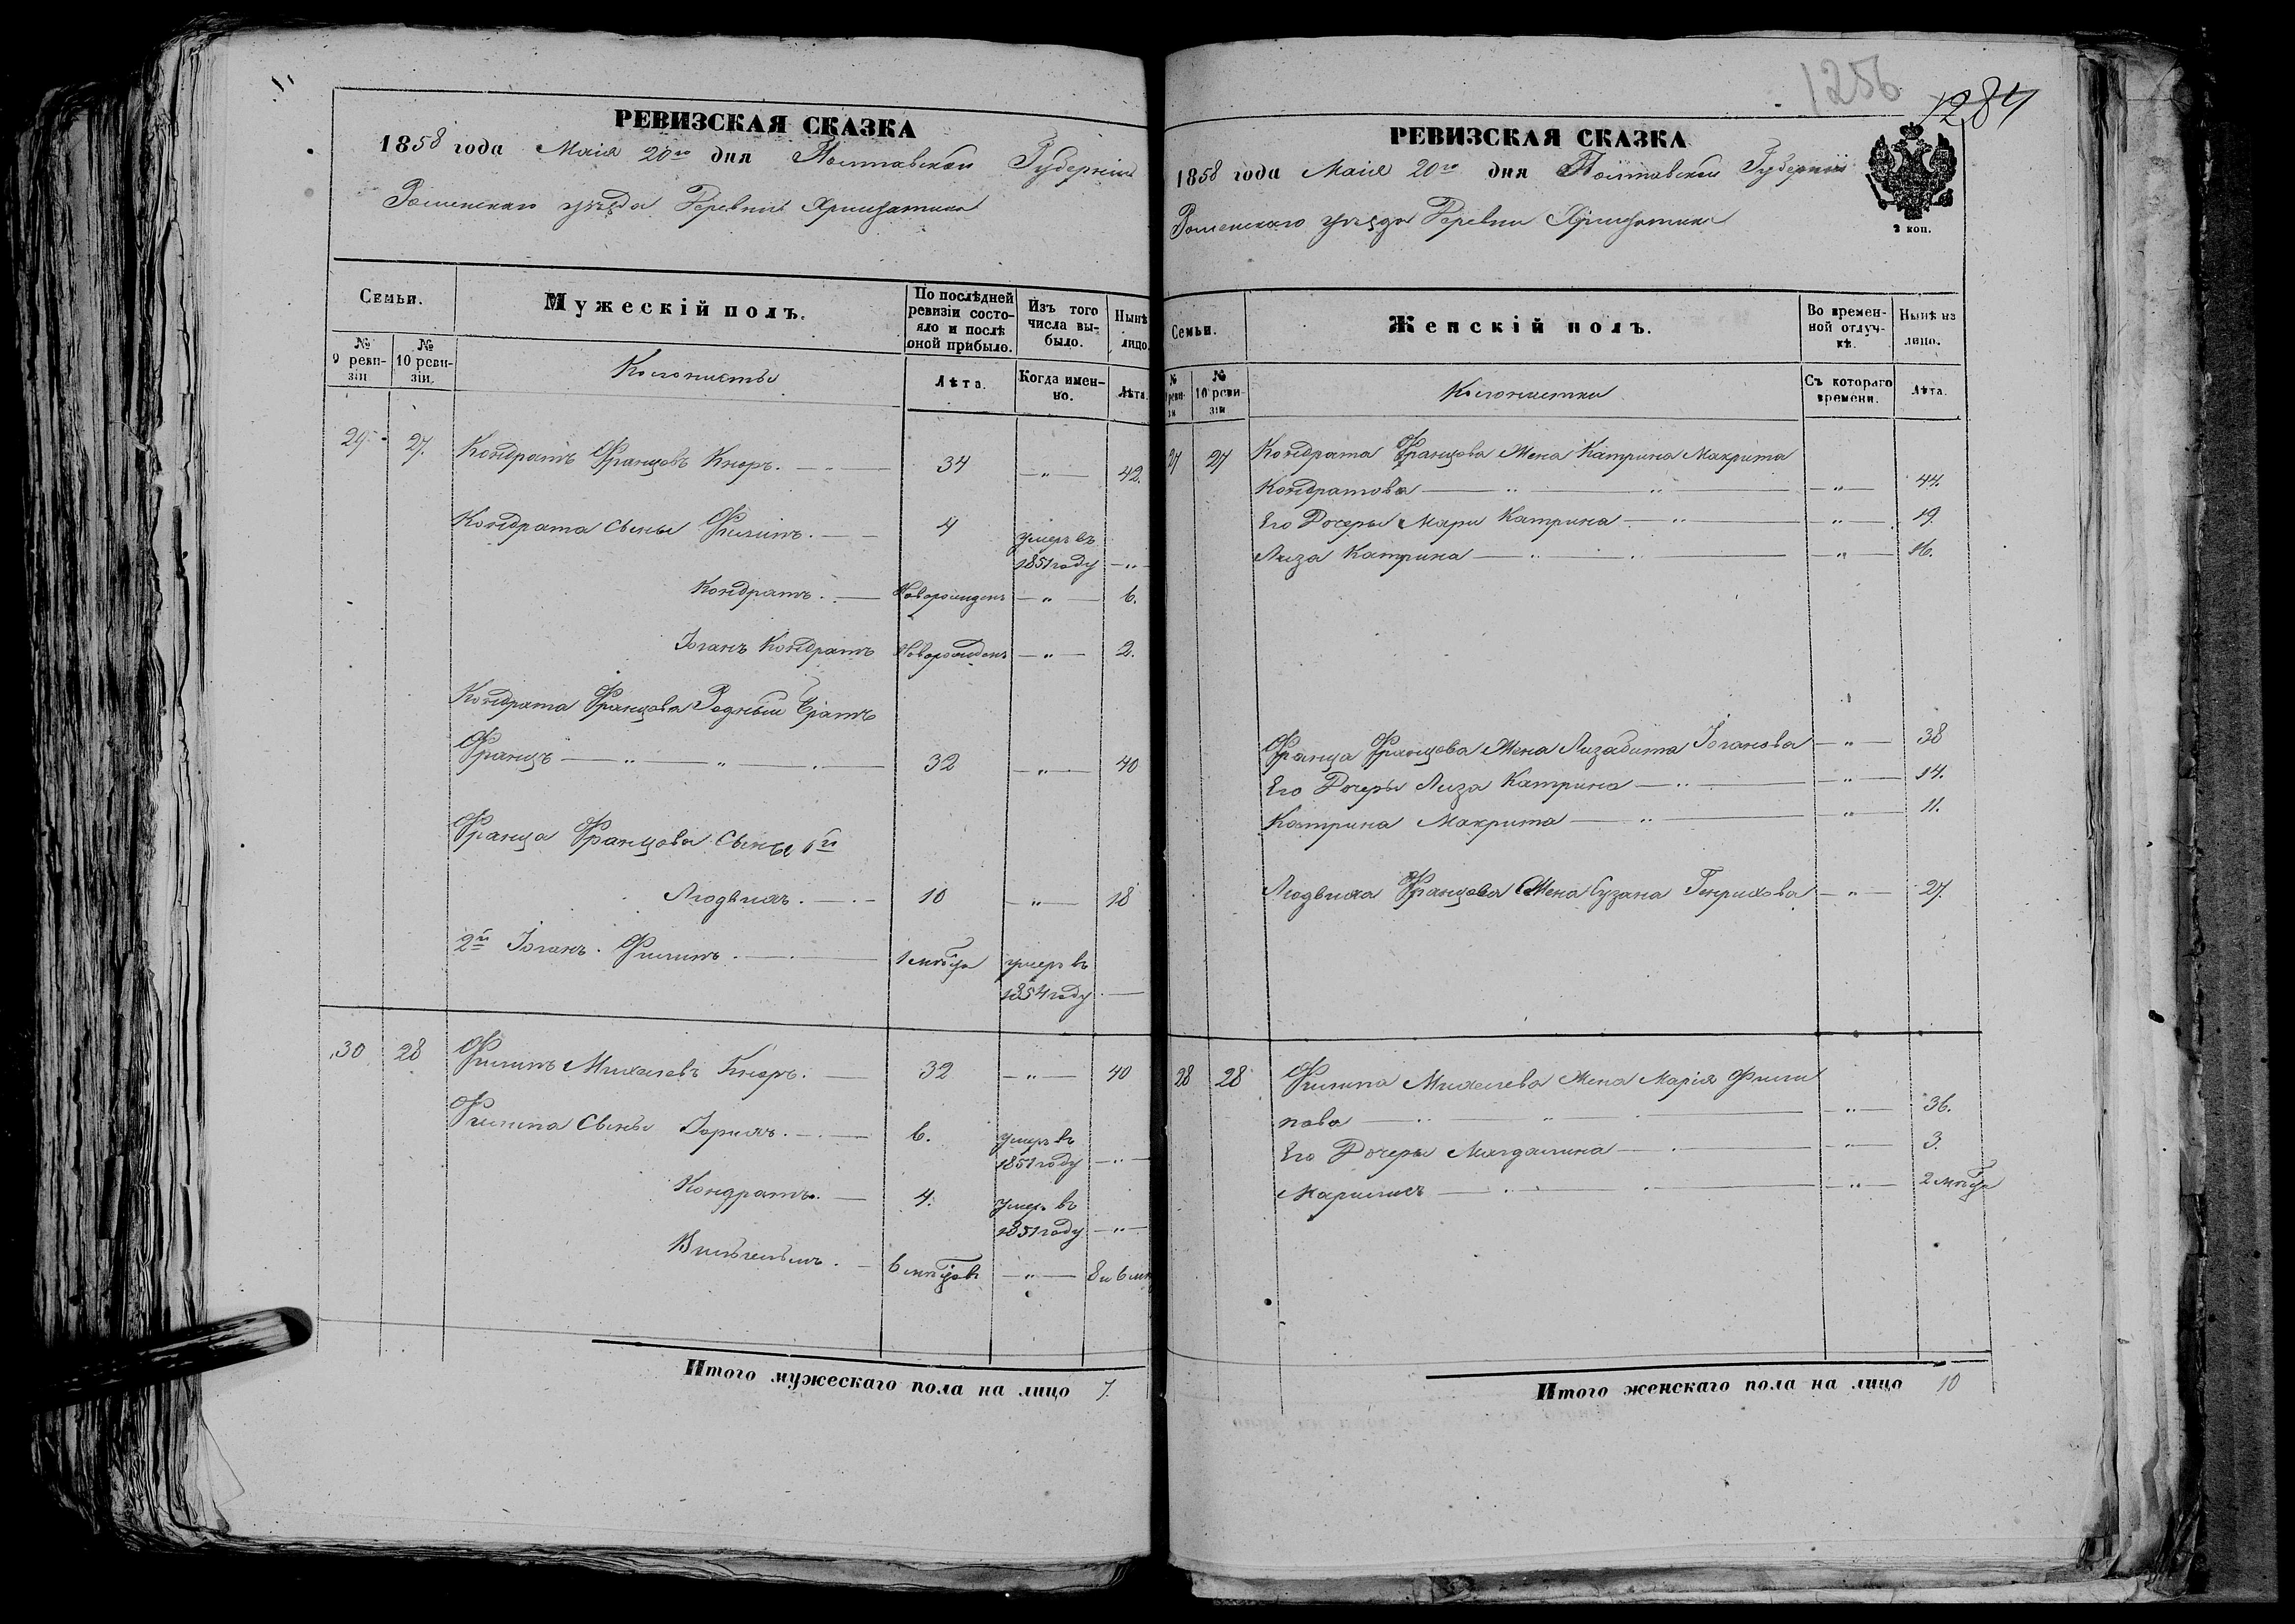 РЕВИЗСКАЯ СКАЗКА
1858 года Маія 20го дня Полтавской Губерніи
Роменскаго уѣзда Деревни Хрищатика
Семьи.
Мужескій полъ.
По послѣдней ревизіи состояло и послѣ оной прибыло.
Изъ того числа выбыло.
Нынѣ лицо.
№ 9 ревизіи
№ 10 ревизіи.
Колонисты
Лѣта.
Когда именно.
Лѣта.
29 27. Кондратъ Францовъ Кноръ. 34 — „ — 42.
Кондрата Сыны Филипъ. 4 умеръ въ
1851 году — „ —
Кондратъ. Новорожденъ — „ — 6.
Іоганъ Кондратъ Новорожденъ — „ — 2.
Кондрата Францова Родный Братъ
Францъ — „ — „ — 32 — „ — 40
Франца Францова Сыны 1й
Людвихъ. 10 — „ — 18
2й Іоганъ Филипъ. 1 мѣсяца умеръ въ
1854 году —
30 28 Филипъ Михелевъ Кноръ. 32 — „ — 40
Филипа Сыны Іорихъ. 6. умеръ въ
1851 году — „ —
Кондратъ. 4. умеръ въ
1851 году — „ —
Вильгельмъ. 6 мѣсяцовъ — „ — 8 и 6 мѣ
Итого мужескаго пола на лицо 7.
1256
1284
РЕВИЗСКАЯ СКАЗКА
1858 года Маія 20го дня Полтавской Губерніи
Роменскаго уѣзда Деревни Хрищатика
2 коп.
Семьи.
Женскій полъ.
Во временной отлучкѣ.
Нынѣ на лицо.
№ ревизіи
№ 10 ревизіи
Колонистки
Съ котораго времени.
Лѣта.
27 27 Кондрата Францова Жена Катрина Макрита
Кондратова — „ — „ — — „ — 44.
Его Дочеры Мари Катрина — „ — — „ — 19.
Лиза Катрина — „ — — „ — 16.
Франца Францова Жена Лизабита Іоганова — „ — 38
Его Дочеры Лиза Катрина — „ — — „ — 14.
Катрина Макрита — „ — — „ — 11.
Людвиха Францова Жена Сузана Генрихова — „ — 27.
28 28 Филипа Михелева Жена Марія Фили
пова — „ — „ — — „ — 36.
Его Дочеры Магдалина — — „ — 3.
Марилисъ — „ — — „ — 2 мѣсяца
Итого женскаго пола на лицо 10